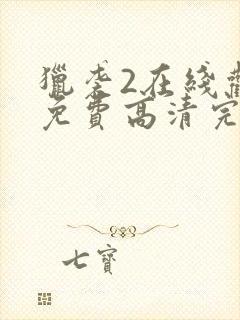 獵李2在綫觀
免費高清完
七寶